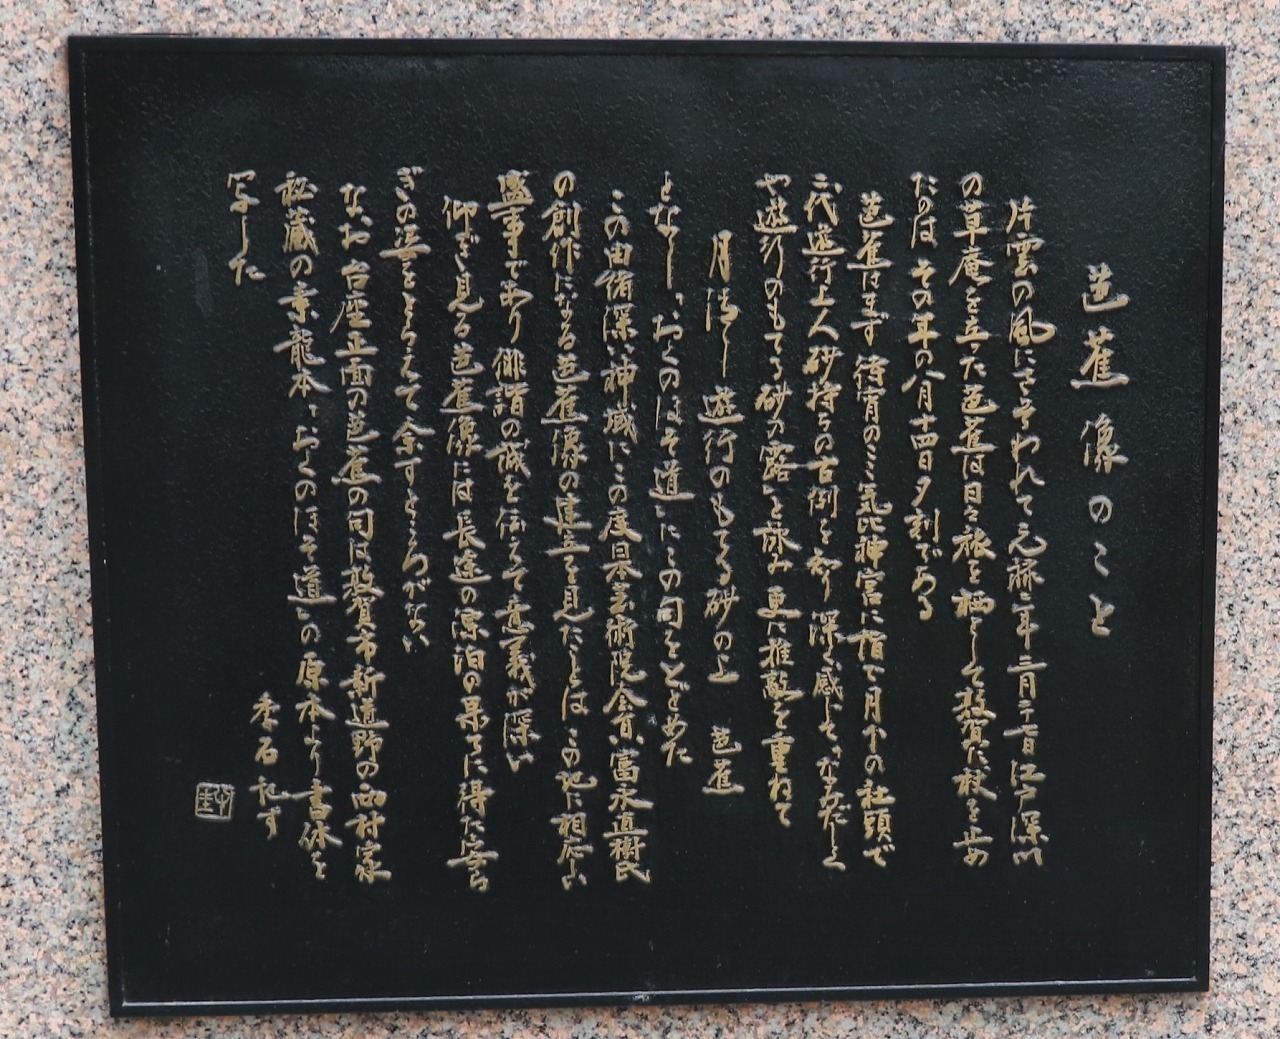 芭蕉像のこと
片雲の風にさそわれて元禄二年三月二十七日江戸深川
の草庵を立った芭蕉は日々旅を栖として敦賀に杖を止め
たのは その年の八月十四日夕刻である
芭蕉はまず 待宵のここ気比神宮に詣で月下の社頭で
二代遊行上人砂持ちの古例を知り 深く感じて「なみだしくや
遊行のもてる砂の露」と詠み 更に推敲を重ねて
月清し 遊行のもてる砂の上 芭蕉
となし「おくのほそ道」にこの句をとどめた
この由緒深い神域にこの度日本芸術院会員 富永直樹氏
の創作になる芭蕉像の建立を見たことは この地に相応しい
盛事であり 俳諧の誠を伝えて意義が深い
仰ぎ見る芭蕉像には 長途の漂泊の果ちに得た安ら
ぎの姿をとらえて余すところがない
なお 台座正面の芭蕉の句は敦賀市新道野の西村家
秘蔵の素龍本「おくのほそ道」の原本より書体を
写した
石 記す